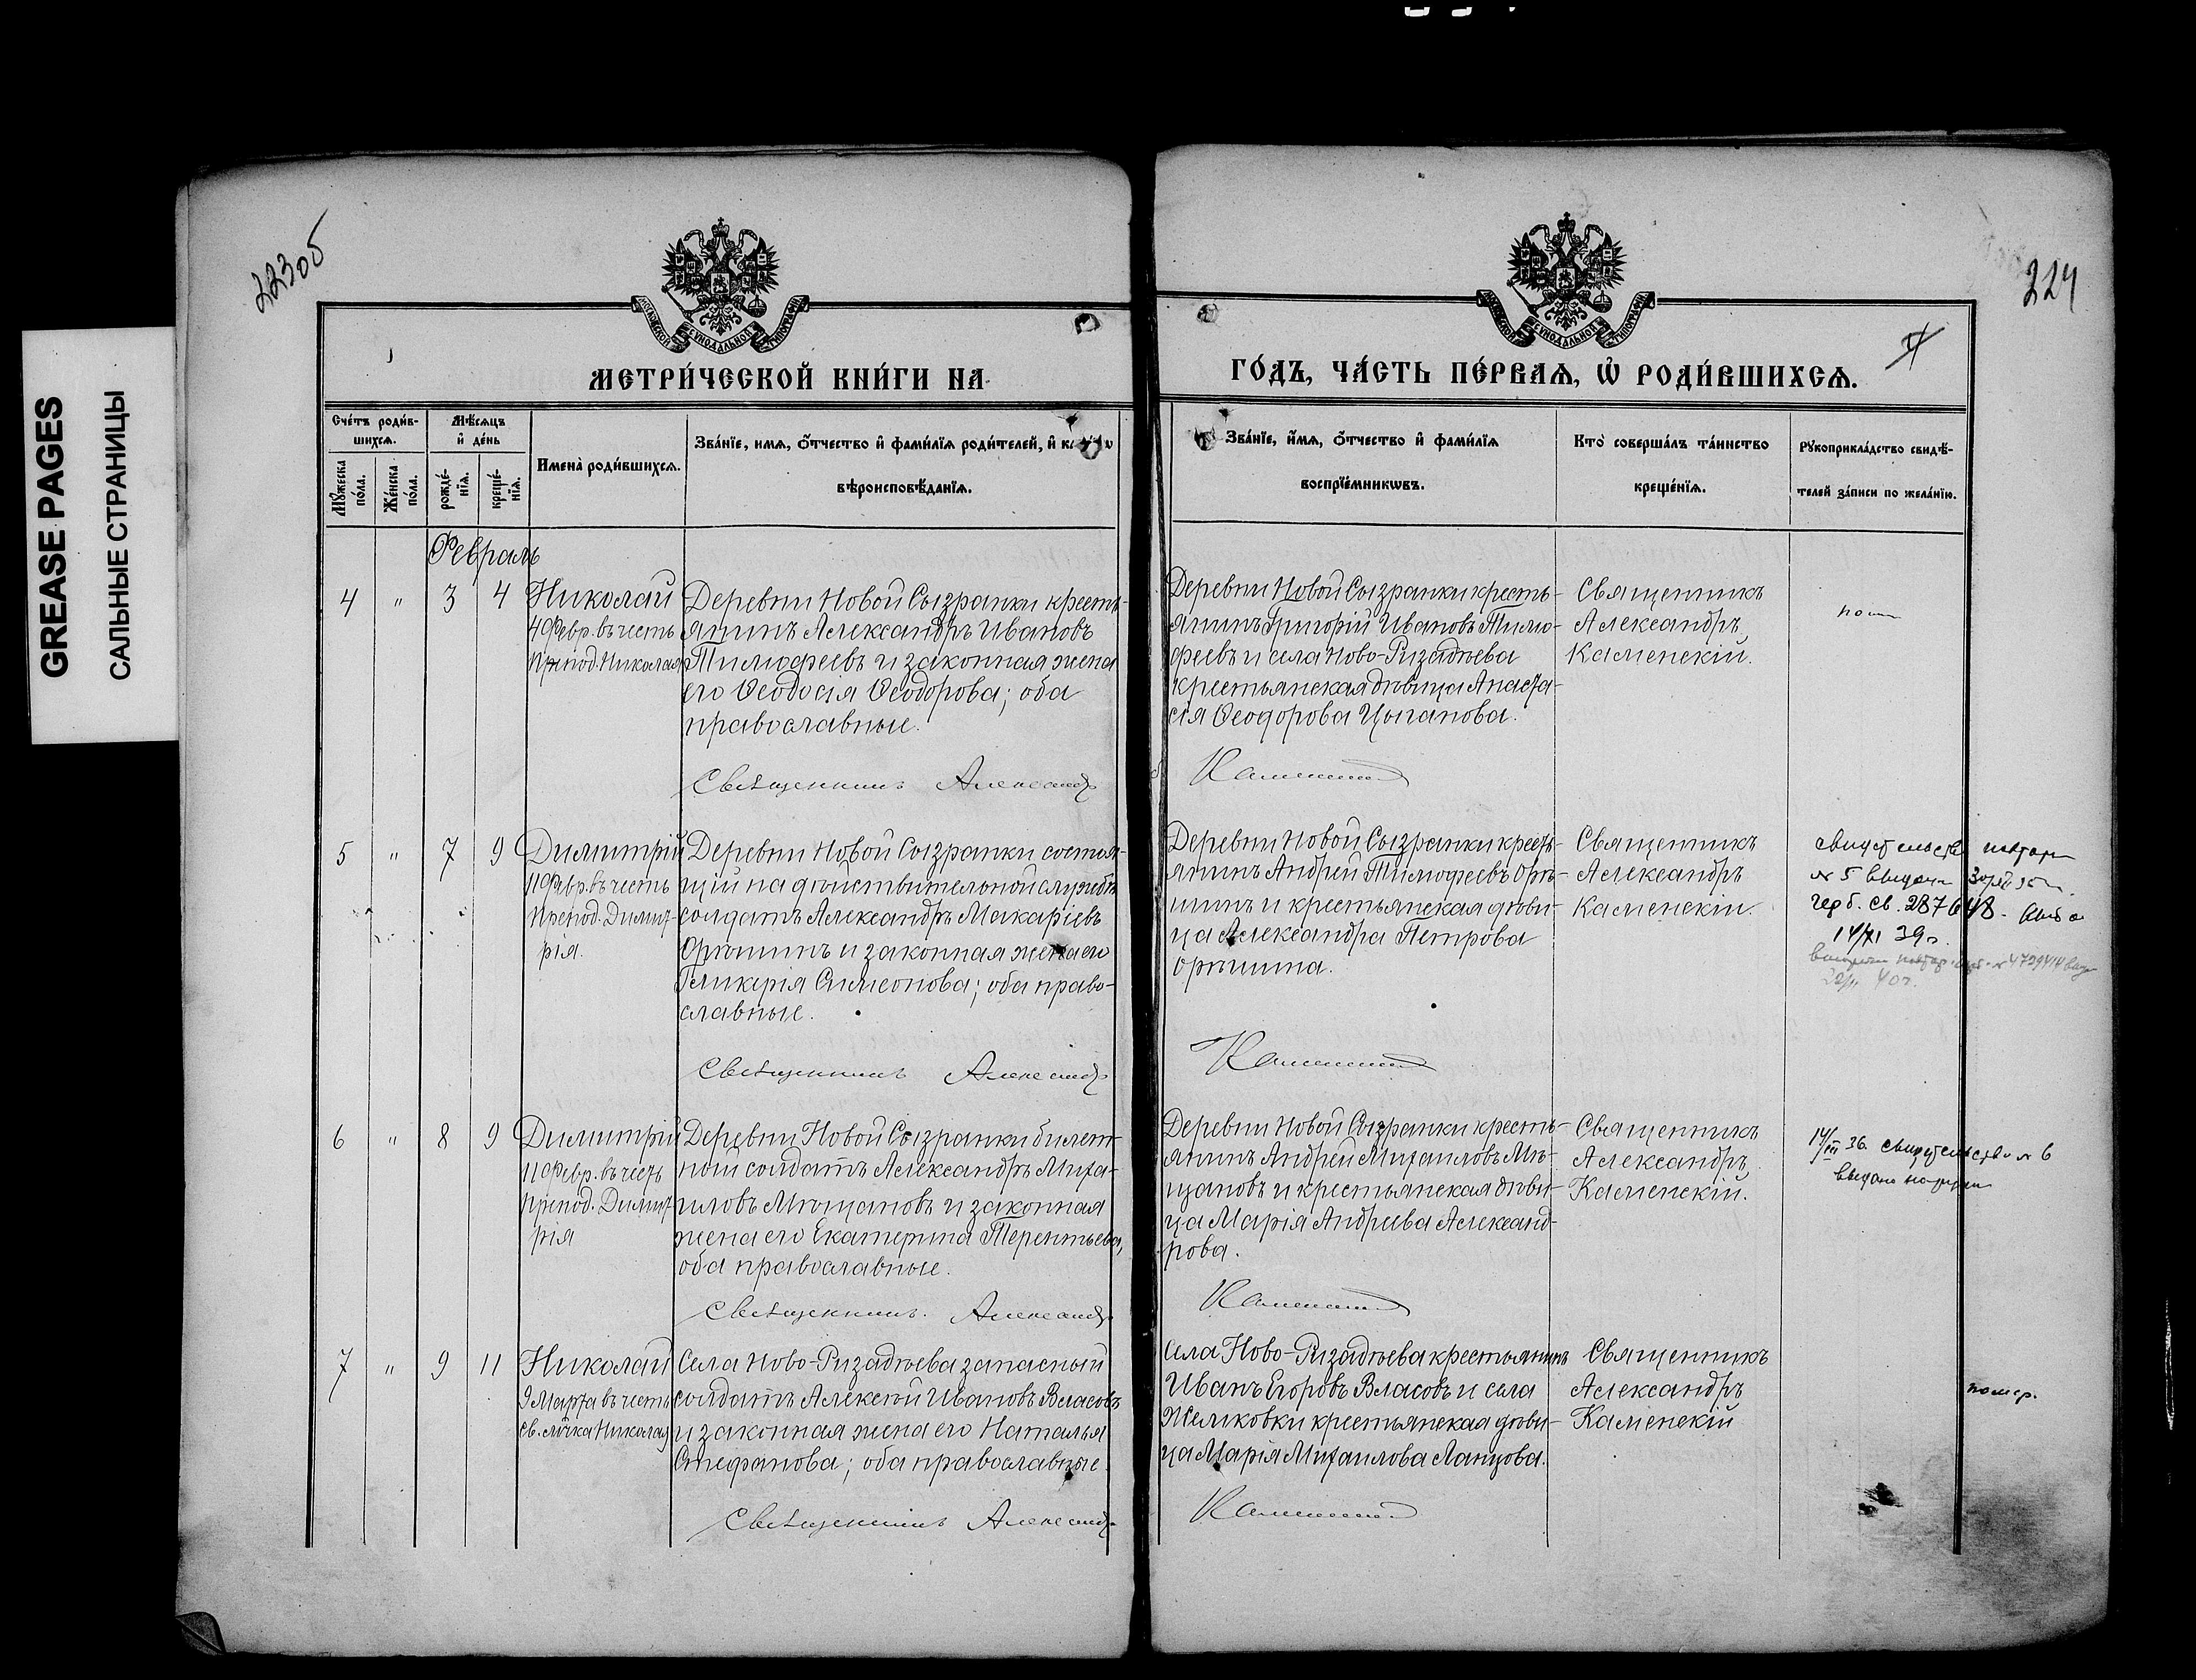 GREASE PAGES
САЛЬНЫЕ СТРАНИЦЫ
223об
МОСКОВСКОЙ СѴНОДАЛЬНОЙ ТИПОГРАФІИ
МЕТРИ́ЧЕСКОЙ КНИ́ГИ НА
Сче́тъ роди́в-
шихсѧ.
Мѣ́сѧцъ
и҆ де́нь
Мꙋ́жеска
по́ла.
Же́нска
по́ла.
рожде́-
нїѧ.
креще́-
нїѧ.
Имена̀ роди́вшихсѧ.
Зва́нїе, имѧ, ѻ҆́тчество и҆ фами́лїѧ роди́телей, и҆
вѣроисповѣ́данїѧ.
Февраль
4 " 3 4
Николай
4 Февр. въ честь
Препод. Николая
Деревни Новой Сызранки кресть-
янинъ Александръ Ивановъ
Тимофеевъ и законная жена
его Ѳеодосія Ѳеодорова; оба
православные.
Священникъ Александръ
5 " 7 9
Димитрій
11 Февр. въ честь
Препод. Димит-
рія.
Деревни Новой Сызранки состоя-
щій на дѣйствительной службѣ
солдатъ Александръ Макаріевъ
Орѣшинъ и законная жена его
Гликерія Симеонова; оба право-
славные.
Священникъ Александръ
6 " 8 9
Димитрій
11 Февр. въ честь
Препод. Димит-
рія
Деревни Новой Сызранки билет-
ной солдатъ Александръ Миха-
иловъ Мѣщановъ и законная
жена его Екатерина Терентьева,
оба православные.
Священникъ. Александръ
7 " 9 11
Николай
9 Марта въ честь
Св. м҃чка Николая
Села Ново-Ризадѣева запасный
солдатъ Алексѣй Ивановъ Власовъ
и законная жена его Наталья
Стефанова; оба православные.
Священникъ Александръ
224
МОСКОВСКОЙ СѴНОДАЛЬНОЙ ТИПОГРАФІИ
ГО́ДЪ, ЧА́СТЬ ПЕ́РВАѦ, Ѡ҆ РОДИ́ВШИХСѦ.
Зва́нїе, и҆́мѧ, ѻ҆́тчество и҆ фами́лїѧ
воспрїе́мникѡвъ.
Кто̀ соверша́лъ та́инство
креще́нїѧ.
Рꙋкоприкла́дство свидѣ́-
телей за́писи по жела́нїю.
Деревни Новой Сызранки кресть-
янинъ Григорій Ивановъ Тимо-
феевъ и села Ново-Ризадѣева
крестьянская дѣвица Анаста-
сія Ѳеодорова Цыганова.
Каменскій
Священникъ
Александръ
Каменскій.
Деревни Новой Сызранки кресть-
янинъ Андрей Тимофеевъ Орѣ-
шинъ и крестьянская дѣви-
ца Александра Петрова
Орѣшина.
Каменскій
Священникъ
Александръ
Каменскій.
свидетельство
№ 5 выдано
герб. св. 287648.
14/XI 39г.
№ 4729414
40 г.
Деревни Новой Сызранки кресть-
янинъ Андрей Михаиловъ Мѣ-
щановъ и крестьянская дѣви-
ца Марія Андреева Александ-
рова.
Каменскій
Священникъ
Александръ
Каменскій.
14/III 36. свидетельство № 6
выдано
Села Ново-Ризадѣева крестьянинъ
Иванъ Егоровъ Власовъ и села
Жемковки крестьянская дѣви-
ца Марія Михаилова Ланцова.
Каменскій
Священникъ
Александръ
Каменскій